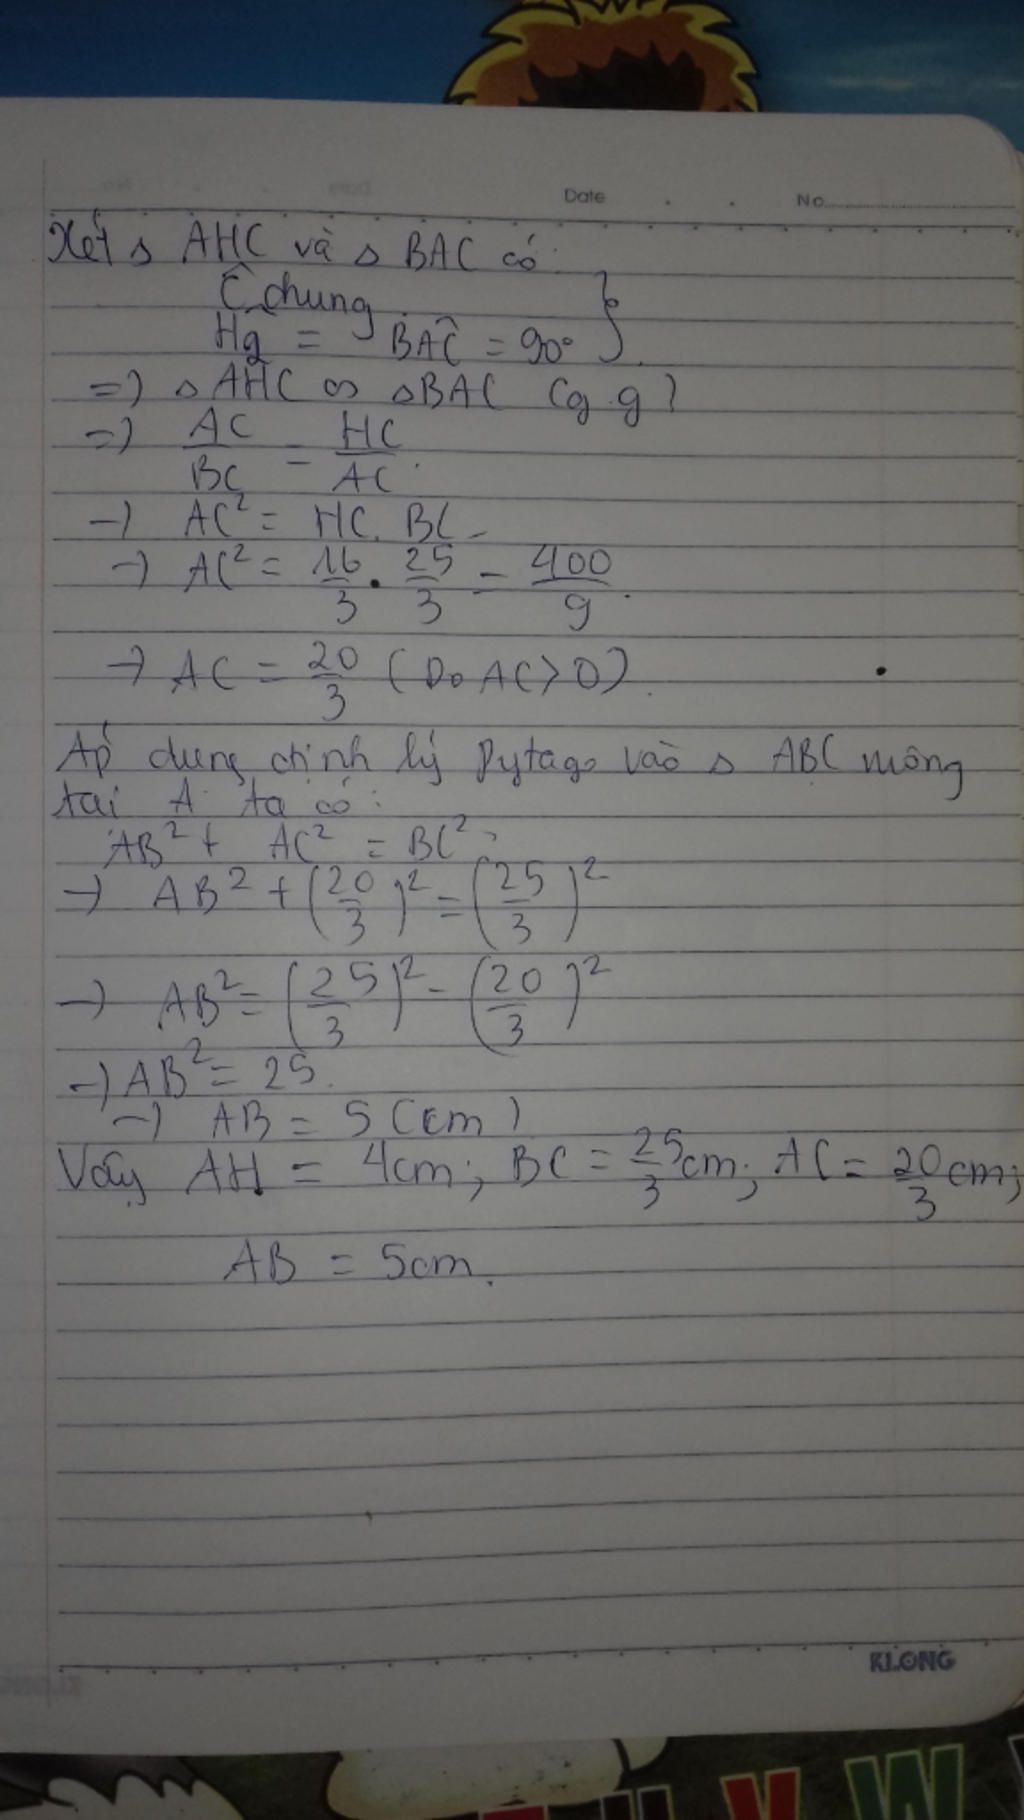 Date No
Xét Δ AHC và Δ BAC có:
Ĉ chung
Ĥ₂ = BAĈ = 90°
=) Δ AHC ∽ Δ BAC (g.g)
=) AC/BC = HC/AC.
-) AC² = HC. BC
-) AC² = 16/3 . 25/3 = 400/9.
-) AC = 20/3 (Do AC>0).
Áp dụng định lý Pytago vào Δ ABC vuông
tại A ta có:
AB² + AC² = BC²
-) AB² + (20/3)² = (25/3)²
-) AB² = (25/3)² - (20/3)²
-) AB² = 25.
-) AB = 5 (cm)
Vậy AH = 4cm; BC = 25/3 cm; AC = 20/3 cm;
AB = 5cm.
KLONG